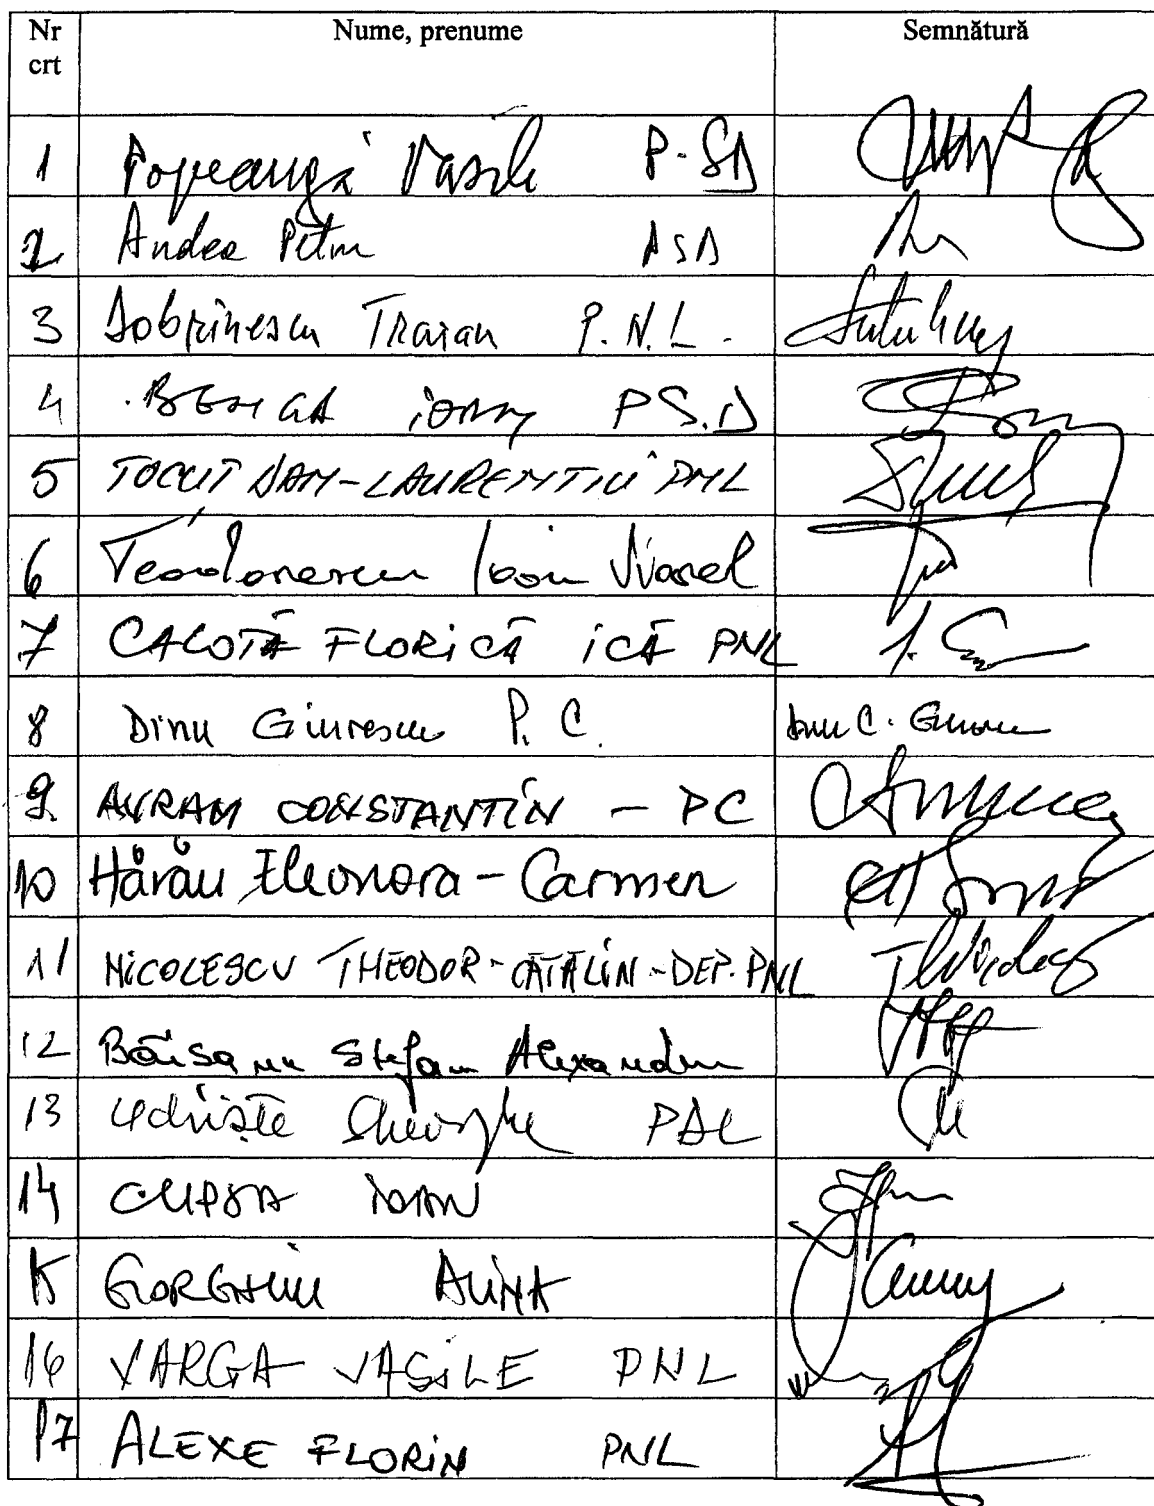 Nr crt Nume, prenume Semnătură
1 Popeangă Vasile P.SD
2 Andea Petru PSD
3 Dobrinescu Traian P.N.L.
4 BENGA ioan PS.D
5 TOCUT DAN-LAURENTIU PNL
6 Teodorescu Ioan Viorel
7 CALOTĂ FLORICĂ ICĂ PNL
8 Dinu Giurescu P.C.
9 AVRAM CONSTANTIN - PC
10 Hărău Eleonora-Carmen
11 NICOLESCU THEODOR-CĂTĂLIN-DEP.PNL
12 Băișanu Ștefan Alexandru
13 Udriște Gheorghe PDL
14 CUPȘA IOAN
15 GORGHIU ALINA
16 VARGA VASILE PNL
17 ALEXE FLORIN PNL